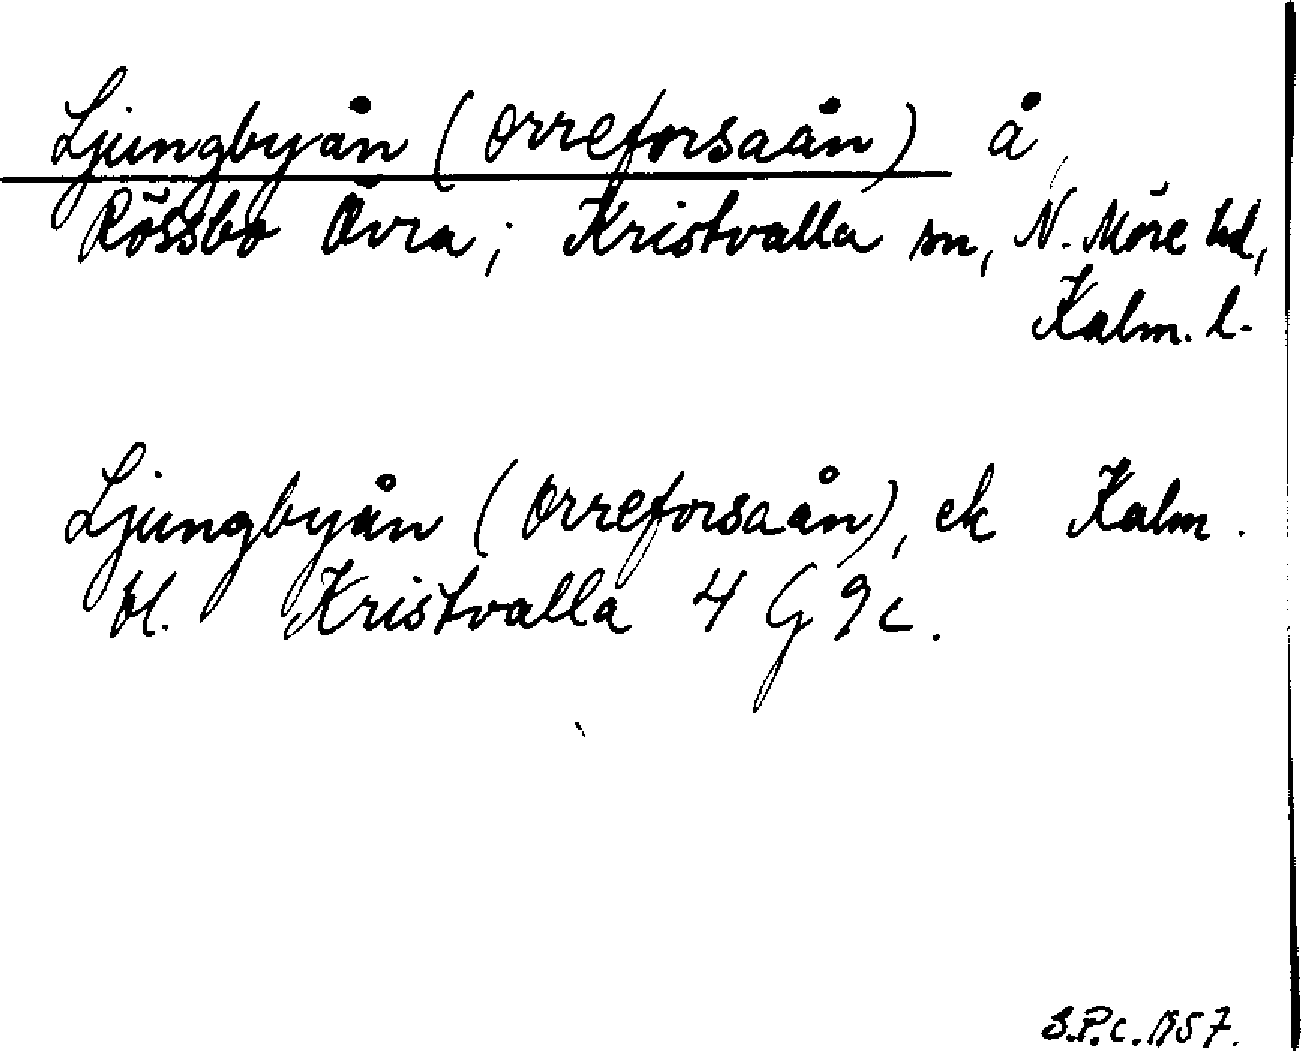 Ljungbyån (Orreforsaån) å
Rössbo Övra; Kristvalla sn, N. Möre hd,
Kalm. l.
Ljungbyån (Orreforsaån), ek Kalm.
bl. Kristvalla 4 G 9 c.
S.P.C. 1957.